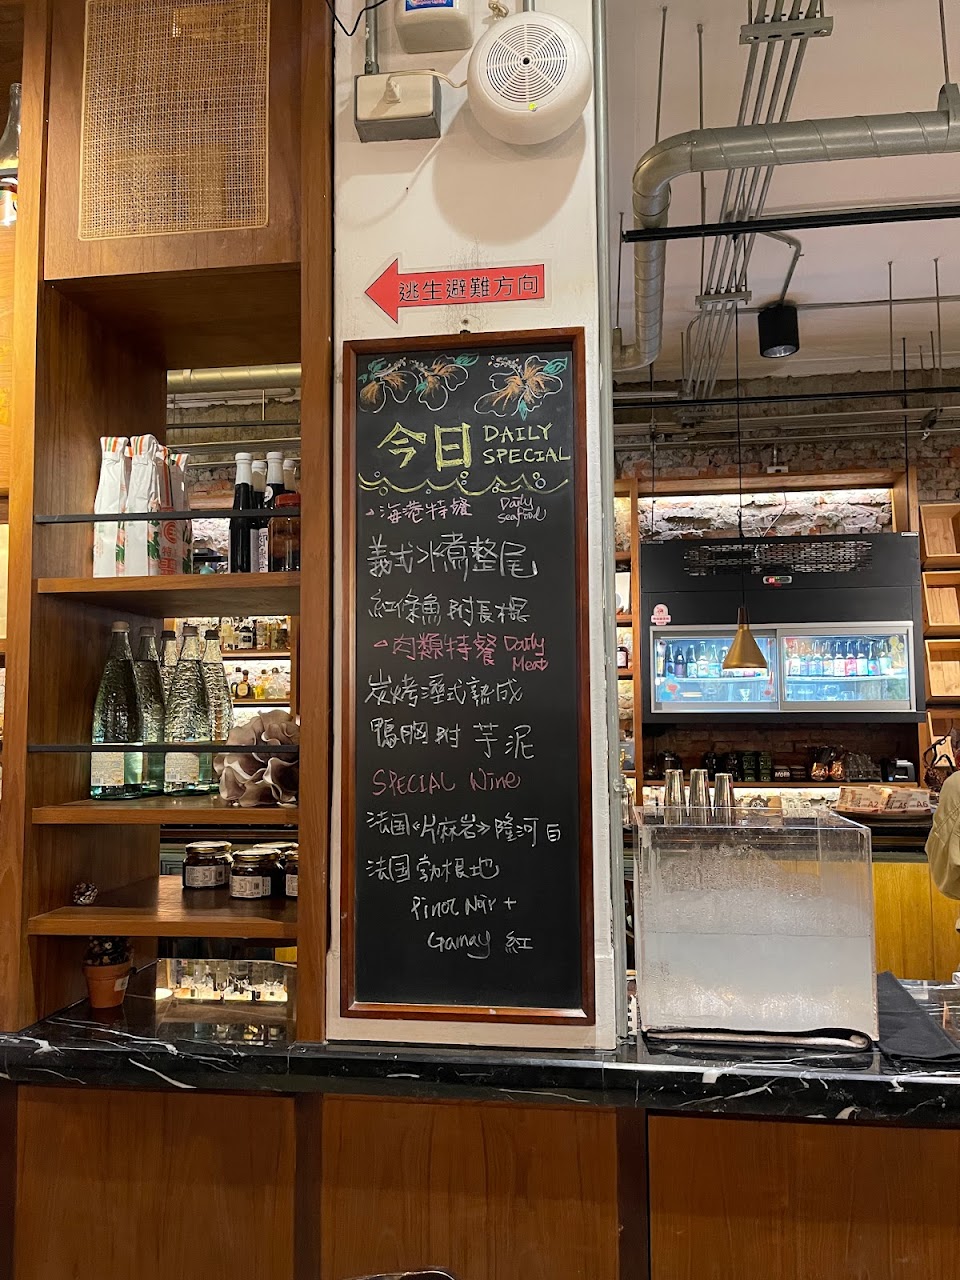 逃生避難方向
今日 DAILY SPECIAL
海港特餐 Daily seafood
義式水煮整尾
紅條魚附長棍
肉類特餐 Daily Meat
炭烤濕式熟成
鴨胸附芋泥
SPECIAL Wine
法国《片麻岩》隆河白
法国勃根地
Pinot Noir +
Gamay 紅